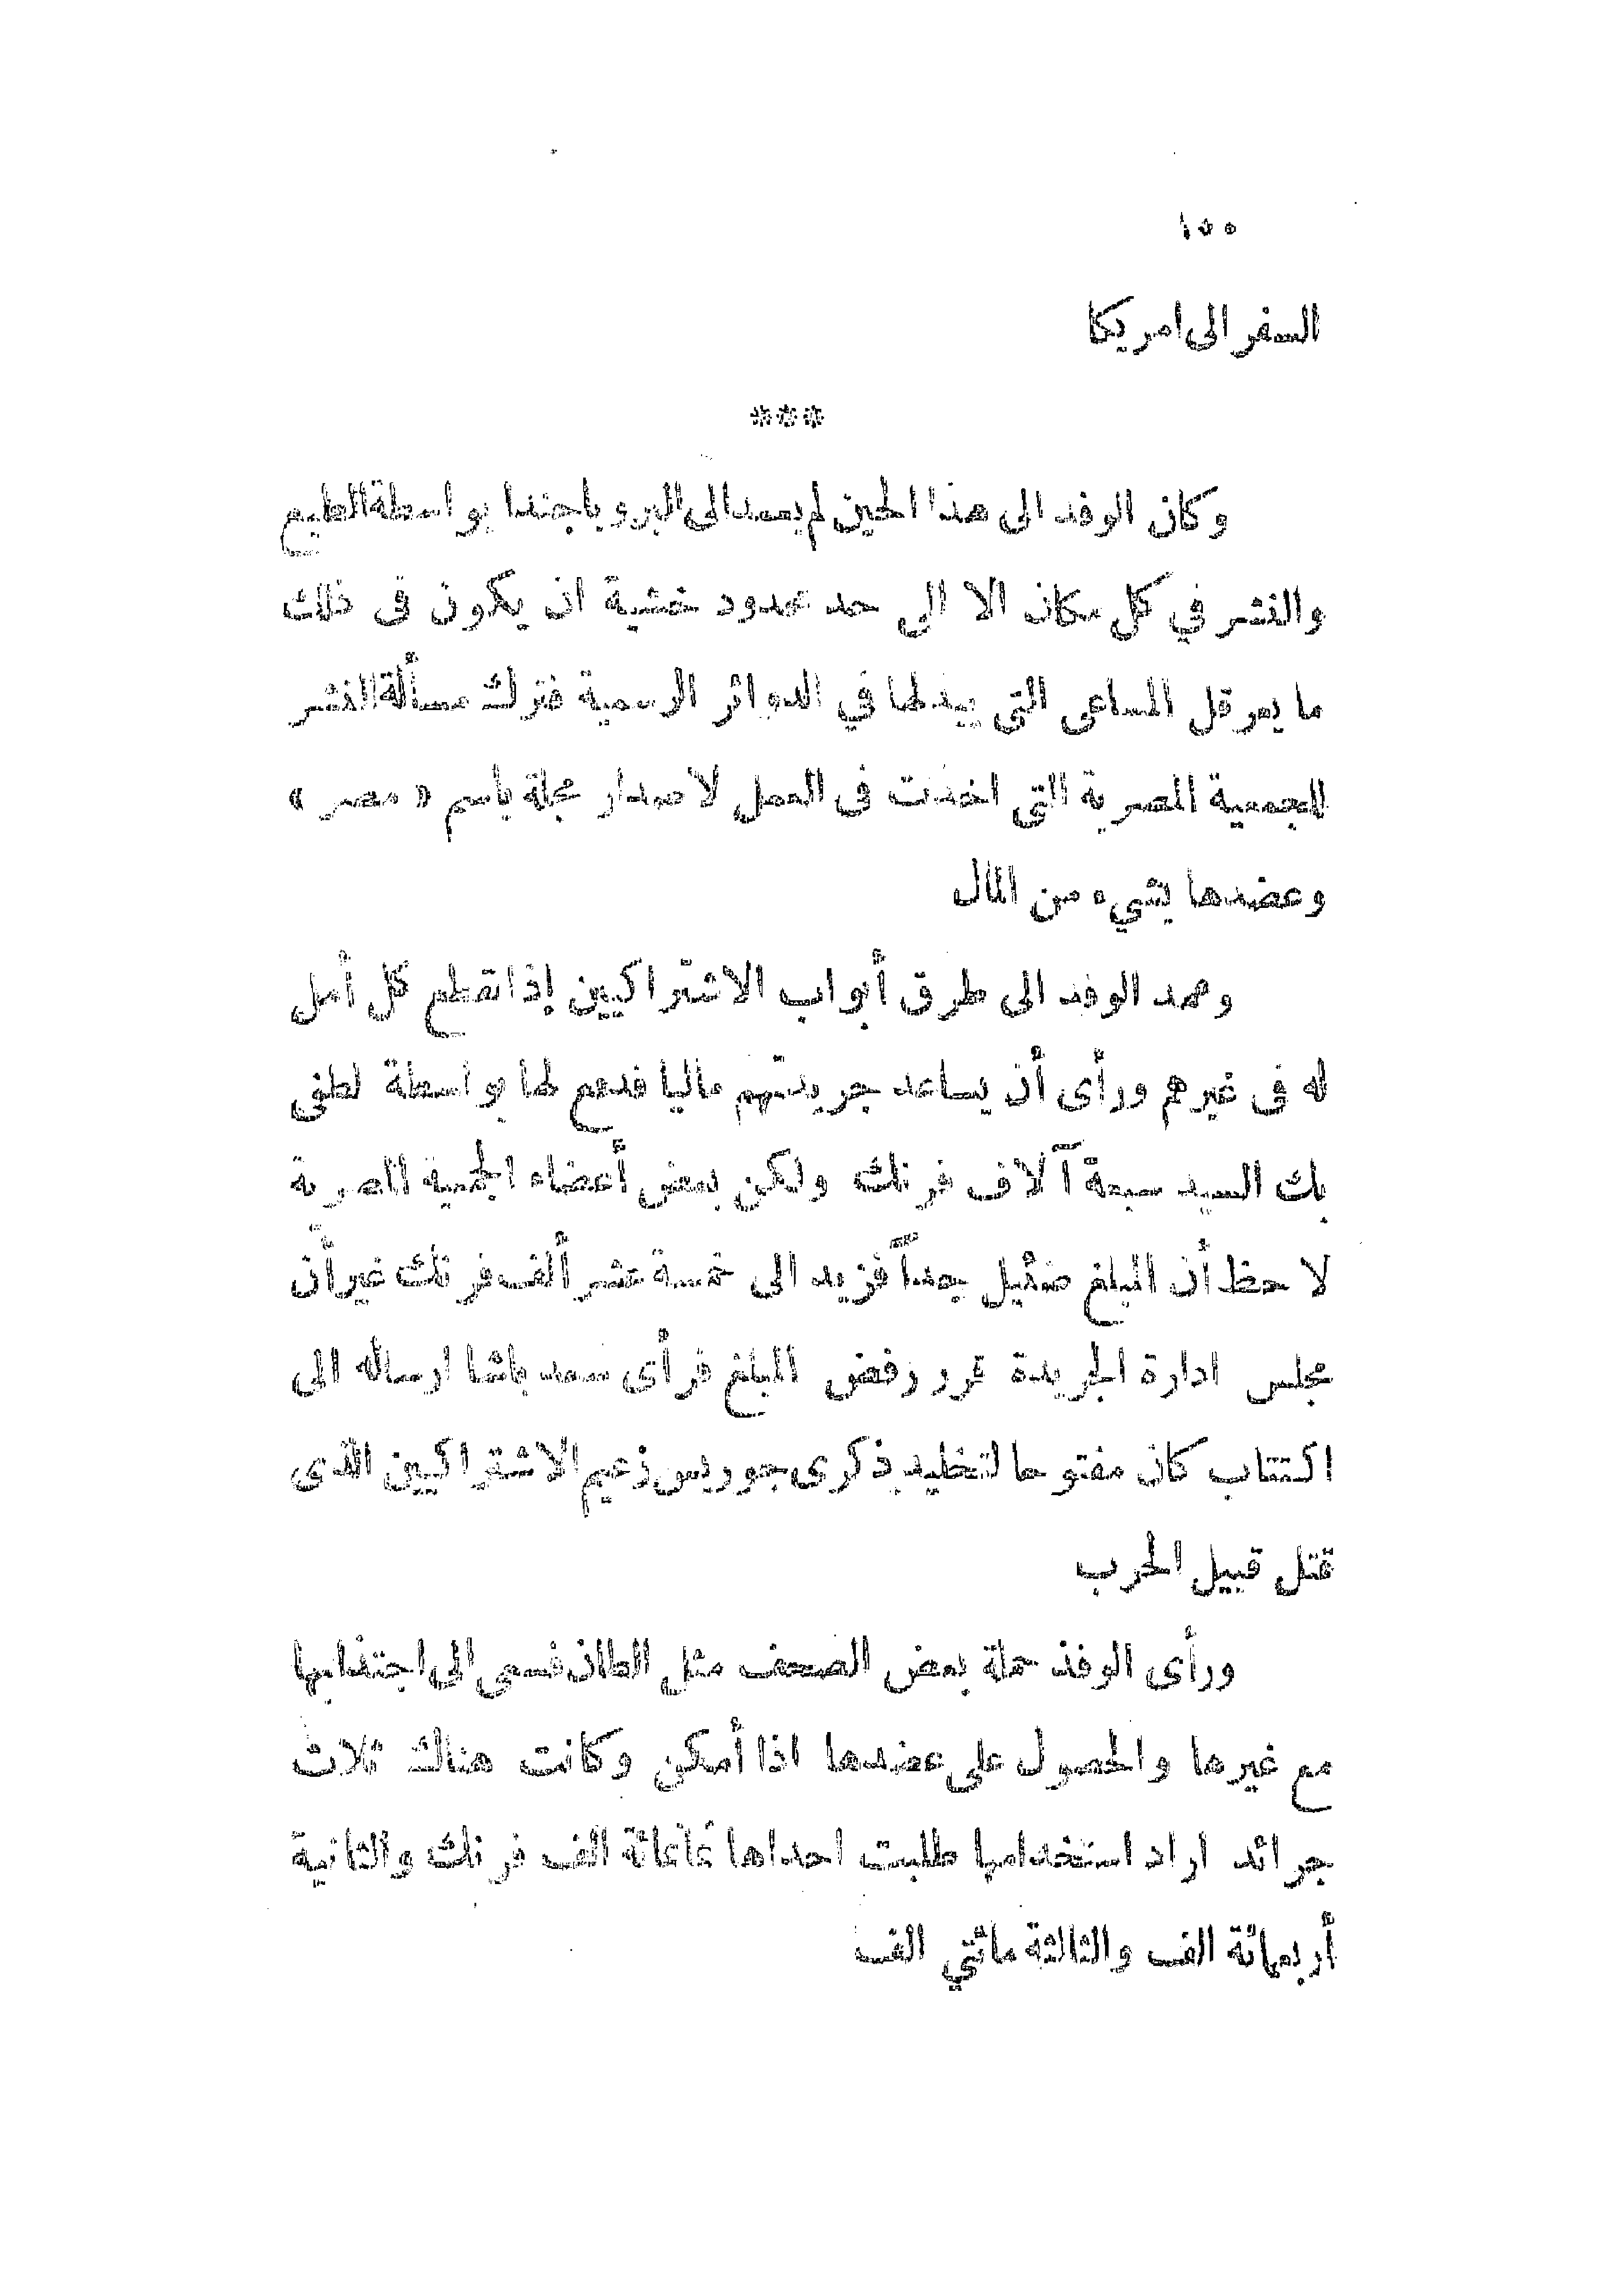 ١٥٥
السفر الى امريكا
***
وكان الوفد الى هذا الحين لم يعمد الى البروباجندا بواسطة الطبع
والنشر في كل مكان الا الى حد محدود خشية ان يكون فى ذلك
ما يعرقل المساعى التى يبذلها في الدوائر الرسمية فترك مسألة النشر
للجمعية المصرية التى اخذت فى العمل لاصدار مجلة باسم « مصر »
وعضدها بشيء من المال
وعمد الوفد الى طرق أبواب الاشتراكيين إذا نقطع كل أمل
له فى غيرهم ورأى أن يساعد جريدتهم ماليا فدفع لها بواسطة لطفى
بك السيد سبعة آلاف فرنك ولكن بعض أعضاء الجمعية المصرية
لاحظ أن المبلغ ضئيل جداً فزيد الى خمسة عشر ألف فرنك غير أن
مجلس ادارة الجريدة قرر رفض المبلغ فرأى سعد باشا ارساله الى
اكتتاب كان مفتوحا لتخليد ذكرى جوريس زعيم الاشتراكيين الذى
قتل قبيل الحرب
ورأى الوفد حملة بعض الصحف مثل الطان فسعى الى اجتذابها
مع غيرها والحصول على عضدها اذا أمكن وكانت هناك ثلاث
جرائد اراد استخدامها طلبت احداها ثمانمائة الف فرنك والثانية
أربعمائة الف والثالثة مائتي الف